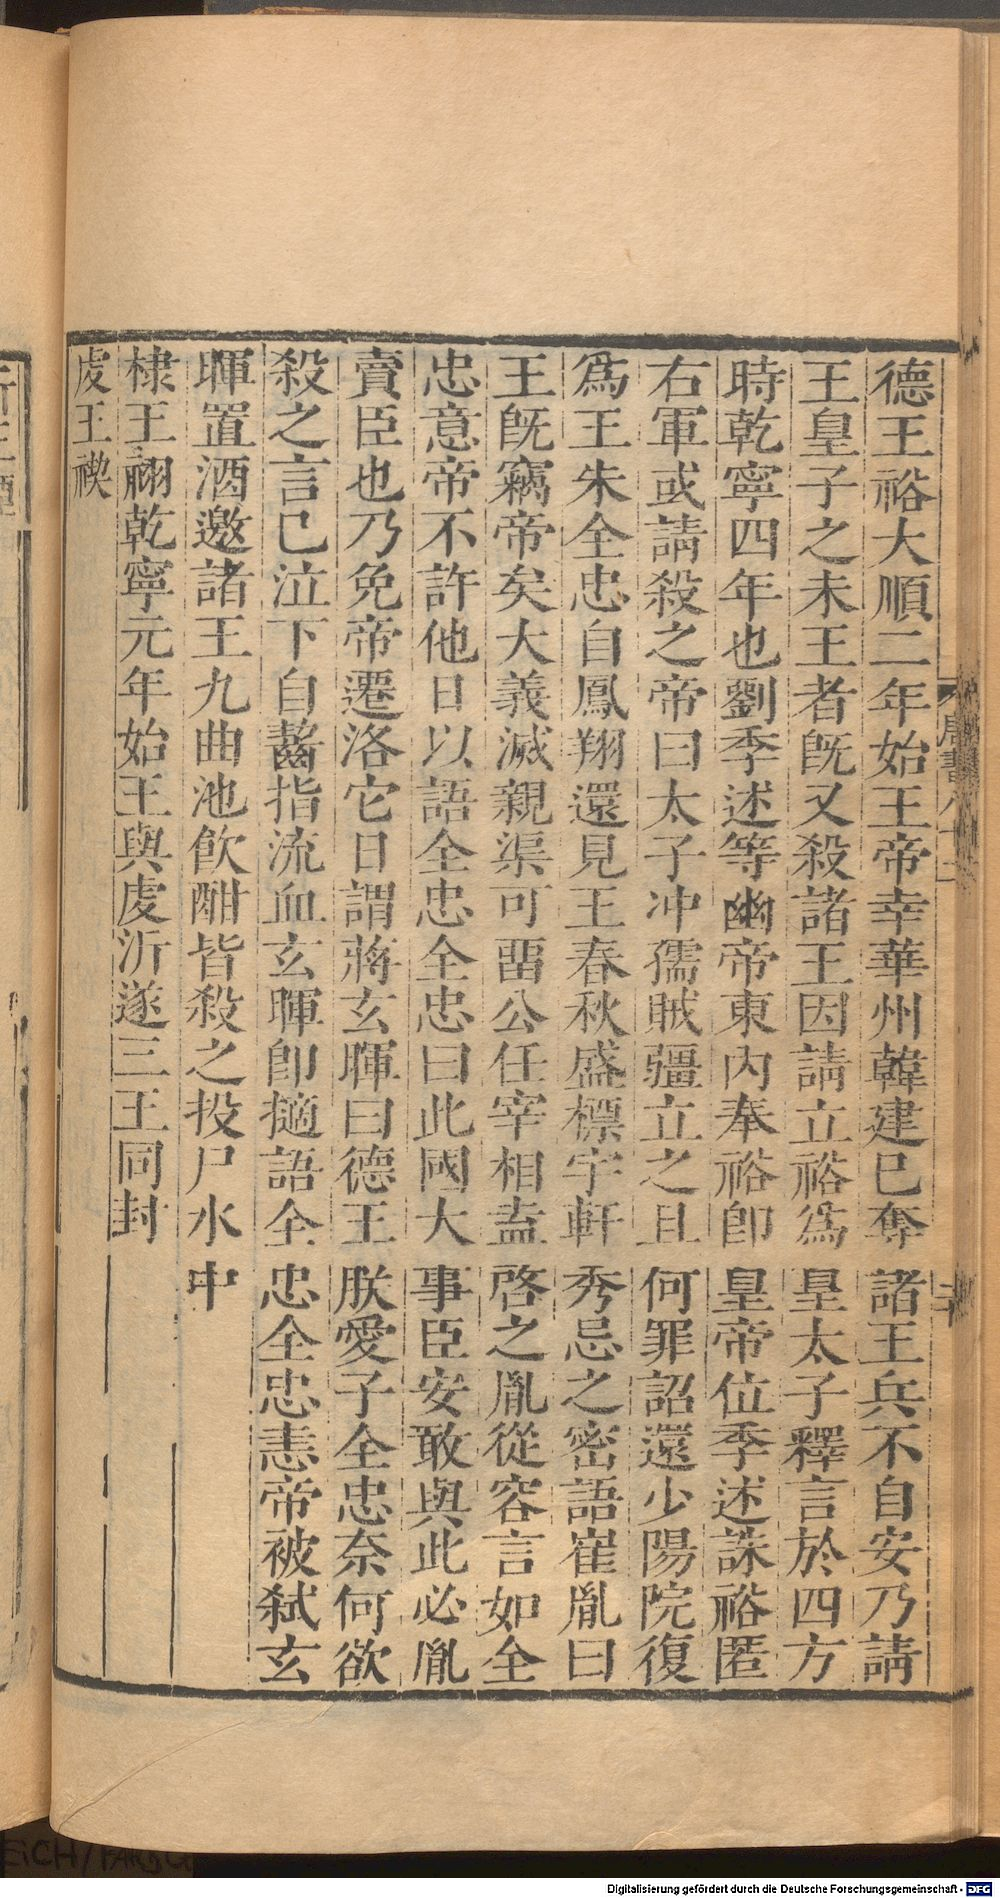 德王裕大順二年始王帝幸華州韓建已奪諸王兵不自安乃請
王皇子之未王者旣又殺諸王因請立裕爲皇太子釋言於四方
時乾寧四年也劉季述等幽帝東內奉裕卽皇帝位季述誅裕匿
右軍或請殺之帝曰太子冲孺賊彊立之且何罪詔還少陽院復
爲王朱全忠自鳳翔還見王春秋盛標宇軒秀忌之密語崔胤曰
王旣竊帝矣大義滅親渠可畱公任宰相盍啓之胤從容言如全
忠意帝不許他日以語全忠全忠曰此國大事臣安敢與此必胤
賣臣也乃免帝遷洛它日謂蔣玄暉曰德王朕愛子全忠奈何欲
殺之言已泣下自齰指流血玄暉卽擿語全忠全忠恚帝被弒玄
暉置酒邀諸王九曲池飮酣皆殺之投尸水中
棣王祤乾寧元年始王與虔沂遂三王同封
虔王禊
唐書八十二
二十
Digitalisierung gefördert durch die Deutsche Forschungsgemeinschaft - DFG